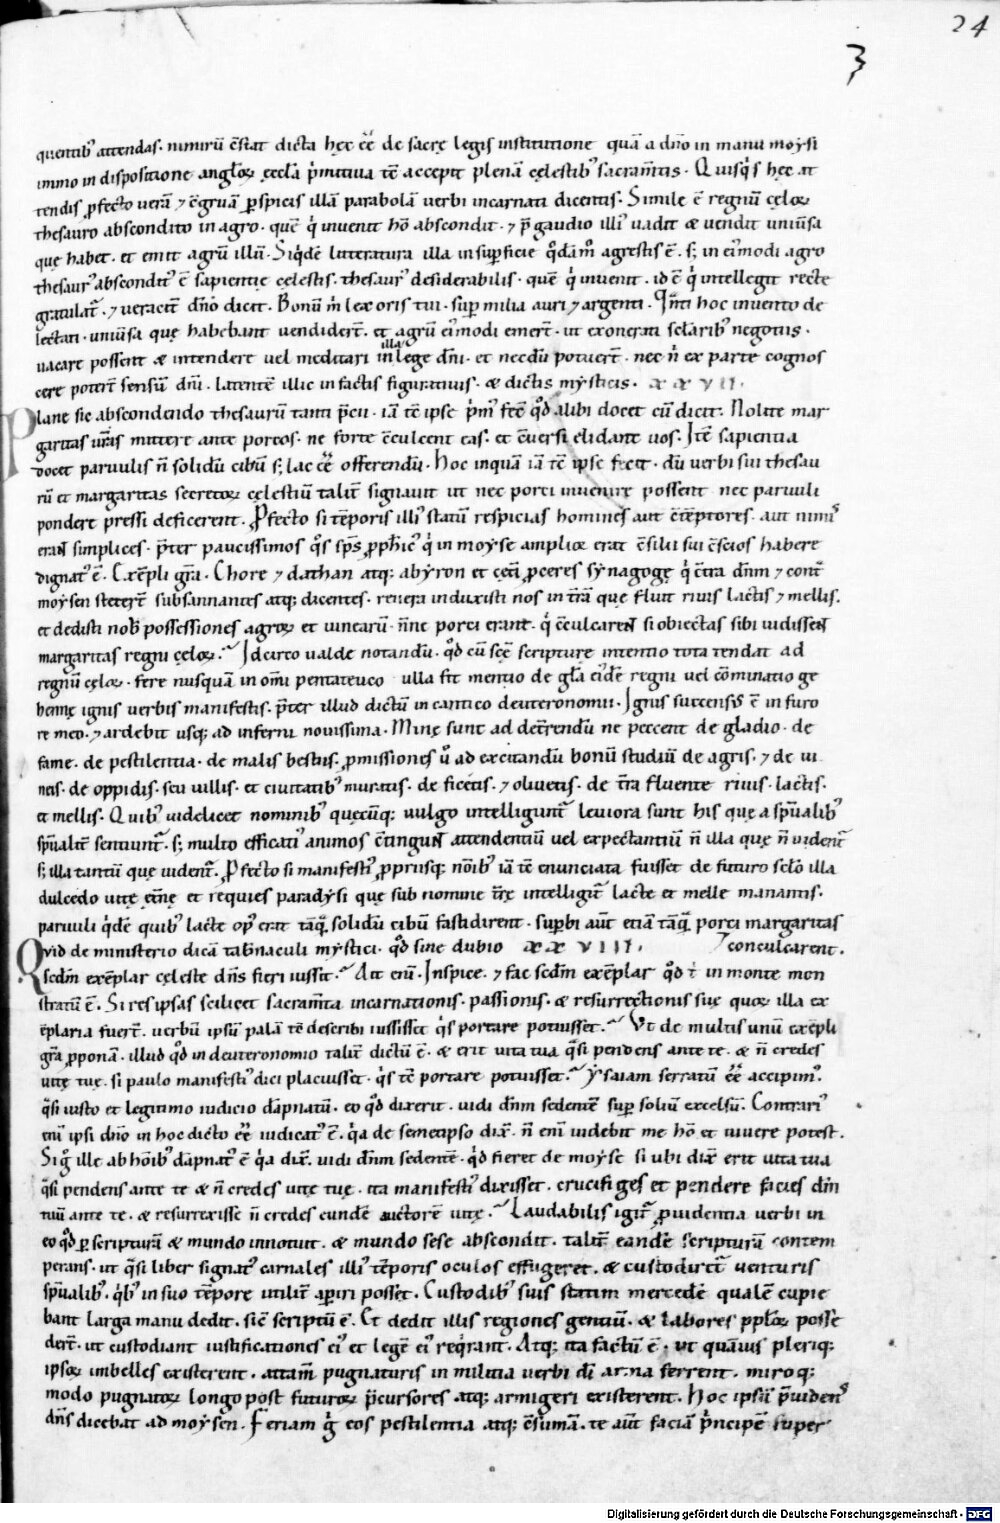 24
3
quentib' attendas. nimirū c̄stat dicta hęc eē de sacrę legis institutione quā a dn̄o in manu moysi
immo in dispositione angl'oꝝ ęccl'a p̄mitiua tc̄ accepit plenā cęlestib' sacram̄tis. Quisq's hęc at
tendis ꝓfecto uerā ⁊ c̄gruā ꝑspicis illā parabolā uerbi incarnati dicentis. Simile ē regnū cęloꝝ
thesauro abscondito in agro. quē q' inuenit hō abscondit. ⁊ p̄ gaudio illi' uadit & uendit uniūsa
quę habet. et emit agrū illū. Siq'dē litteratura illa in suꝑficie q'dām° agrestis ē. s; in ei'modi agro
thesaur' abscondit' ē sapientię cęlestis. thesaur' desiderabilis. quē q' inuenit. id ē q' intellegit recte
gratulat̄. ⁊ ueracit̄ dn̄o dicit. Bonū m̄ lex oris tui. suꝑ milia auri ⁊ argenti. Inuti hoc inuento de
lectati. uniūsa quę habebant uendidert̄. et agrū ei'modi emert̄. ut exonerati sc̄larib' negotiis.
uacare possent & intendere uel meditari in illa lege dn̄i. et necdū potuert̄. nec n̄ ex parte cognos
cere potert̄ sensū dn̄i. latentē illic in factis figuratiuis. & dictis mysticis. XXVII.
Plane sic abscondendo thesaurū tanti p̄cii. iā tc̄ ipse p̄m' fec̄ q'd alibi docet cū dicit. Nolite mar
garitas ur̄as mittere ante porcos. ne forte c̄culcent eas. et c̄uersi elidant uos. Itē sapientia
docet paruulis n̄ solidū cibū s; lac eē offerendū. Hoc inquā iā tc̄ ipse fecit. dū uerbi sui thesau
rū et margaritas secretoꝝ cęlestiū talit̄ signauit ut nec porci inuenire possent nec paruuli
pondere pressi deficerent. Ꝓfecto si tēporis illi' statū respicias homines aut c̄tēptores. aut nimi'
erant simplices. p̄ter paucissimos q'os sp̄s ꝓph'ic' q' in moyse amplior erat c̄silii sui c̄scios habere
dignat' ē. Exēpli gr̄a. Chore ⁊ dathan atq; abyron et cęt̄i ꝓceres synagogę q' c̄tra dn̄m ⁊ cont̄
moysen stetert̄ subsannantes atq; dicentes. reuera induxisti nos in tr̄ā quę fluit riuis lactis ⁊ mellis.
et dedisti nob' possessiones agroꝝ et uinearū. nn̄e porci erant. q' c̄culcarent si obiectas sibi uidissent
margaritas regni cęloꝝ. Idcirco ualde notandū. q'd cū sc̄ę scripturę intentio tota tendat ad
regnū cęloꝝ. fere nusquā in om̄i pentateuco ulla fit mentio de gl'a ei'dē regni uel cōminatio ge
hennę ignis uerbis manifestis. p̄ter illud dictū in cantico deuteronomii. Ignis succensus ē in furo
re meo. ⁊ ardebit usq; ad inferni nouissima. Minę sunt ad det̄rendū ne peccent de gladio. de
fame. de pestilentia. de malis bestiis. ꝓmissiones u° ad excitandū bonū studiū de agris. ⁊ de ui
neis. de oppidis. seu uillis. et ciuitatib' muratis. de ficetis. ⁊ oliuetis. de tr̄a fluente riuis lactis.
et mellis. Quib' uidelicet nominib' quęcūq; uulgo intelligunt̄ leuiora sunt his quę a sp̄ualib'
sp̄ualit̄ sentiunt̄. s; multo efficati' animos c̄tingunt attendentiū uel expectantiū n̄ illa quę n̄ uident̄
s; illa tantū quę uident̄. Ꝓfecto si manifesti' ꝓpriisq; nōib' iā tc̄ enunciata fuisset de futuro sc̄lo illa
dulcedo uitę et̄nę et requies paradysi quę sub nomine tr̄ę intelligit̄ lacte et melle manantis.
paruuli q'dē quib' lacte op' erat tāq̄ solidū cibū fastidirent. suꝑbi aut̄ etiā tāq̄ porci margaritas
conculcarent.
Quid de ministerio dicā tab̄naculi mystici. q'd sine dubio XXVIII.
sc̄dm exēplar cęleste dn̄s fieri iussit. Ait eni'. Inspice. ⁊ fac sc̄dm exēplar q'd t' in monte mon
stratū ē. Si res ipsas scilicet sacram̄ta incarnationis. passionis. & resurrectionis suę quoꝝ illa ex
ēplaria fuert̄. uerbū ipsū palā tc̄ describi iussisset q's portare potuisset. Vt de multis unū exēpli
gr̄a ꝓponā. illud q'd in deuteronomio talit̄ dictū ē. & erit uita tua q'si pendens ante te. & n̄ credes
uitę tuę. si paulo manifesti' dici placuisset. q's tc̄ portare potuisset. Ysaiam serratū eē accipim'.
q'si iusto et legitimo iudicio dāpnatū. eo q'd dixerit. uidi dn̄m sedentē suꝑ soliū excelsū. Contrari'
eni' ipsi dn̄o in hoc dicto eē iudicat' ē. q'a de semetipso dix̄. n̄ eni' uidebit me hō et uiuere potest.
Sig' ille ab hōib' dāpnat' ē q'a dix̄. uidi dn̄m sedentē. q'd fieret de moyse si ubi dix̄ erit uita tua
q'si pendens ante te & n̄ credes uitę tuę. ita manifesti' dixisset. crucifiges et pendere facies dn̄m
tuū ante te. & resurrexisse n̄ credes eundē auctorē uitę. Laudabilis igit̄ ꝓuidentia uerbi in
eo q'd ꝑ scripturā & mundo innotuit. & mundo sese abscondit. talit̄ eandē scripturā contem
perans. ut q'si liber signat' carnales illi' tēporis oculos effugeret. & custodiret̄ uenturis
sp̄ualib'. q'b' in suo tēpore utilit̄ aꝑiri posset. Custodib' suis statim mercedē qualē cupie
bant larga manu dedit. sic̄ scriptū ē. Et dedit illis regiones gentiū. & labores ppl'oꝝ posse
dert̄. ut custodiant iustificationes ei' et legē ei' req'rant. Atq; ita factū ē. ut quāuis pleriq;
ipsoꝝ imbelles existerent. attam̄ pugnaturis in militia uerbi dī arma ferrent. miroq;
modo pugnatoꝝ longo post futuroꝝ p̄cursores atq; armigeri existerent. Hoc ipsū p̄uidens
dn̄s dicebat ad moysen. Feriam g' eos pestilentia atq; c̄sumā. te aut̄ faciā p'ncipē super
Digitalisierung gefördert durch die Deutsche Forschungsgemeinschaft - DFG